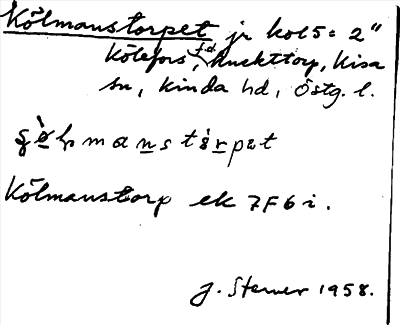 Kölmanstorpet jr kol 5 = 2"
Kölefors, fd. Kisa
sn, Kinda hd, Östg. l.
Kölmanstorp ek 7F6i.
J. Sterner 1958.